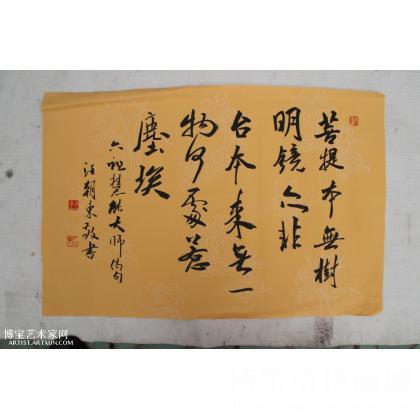 菩提本無樹
明镜亦非
台本来无一
物何處惹
塵埃
六祖慧能大师偈句
汪朝東敬書
博宝艺术家网
ARTIST.ARTXUN.COM